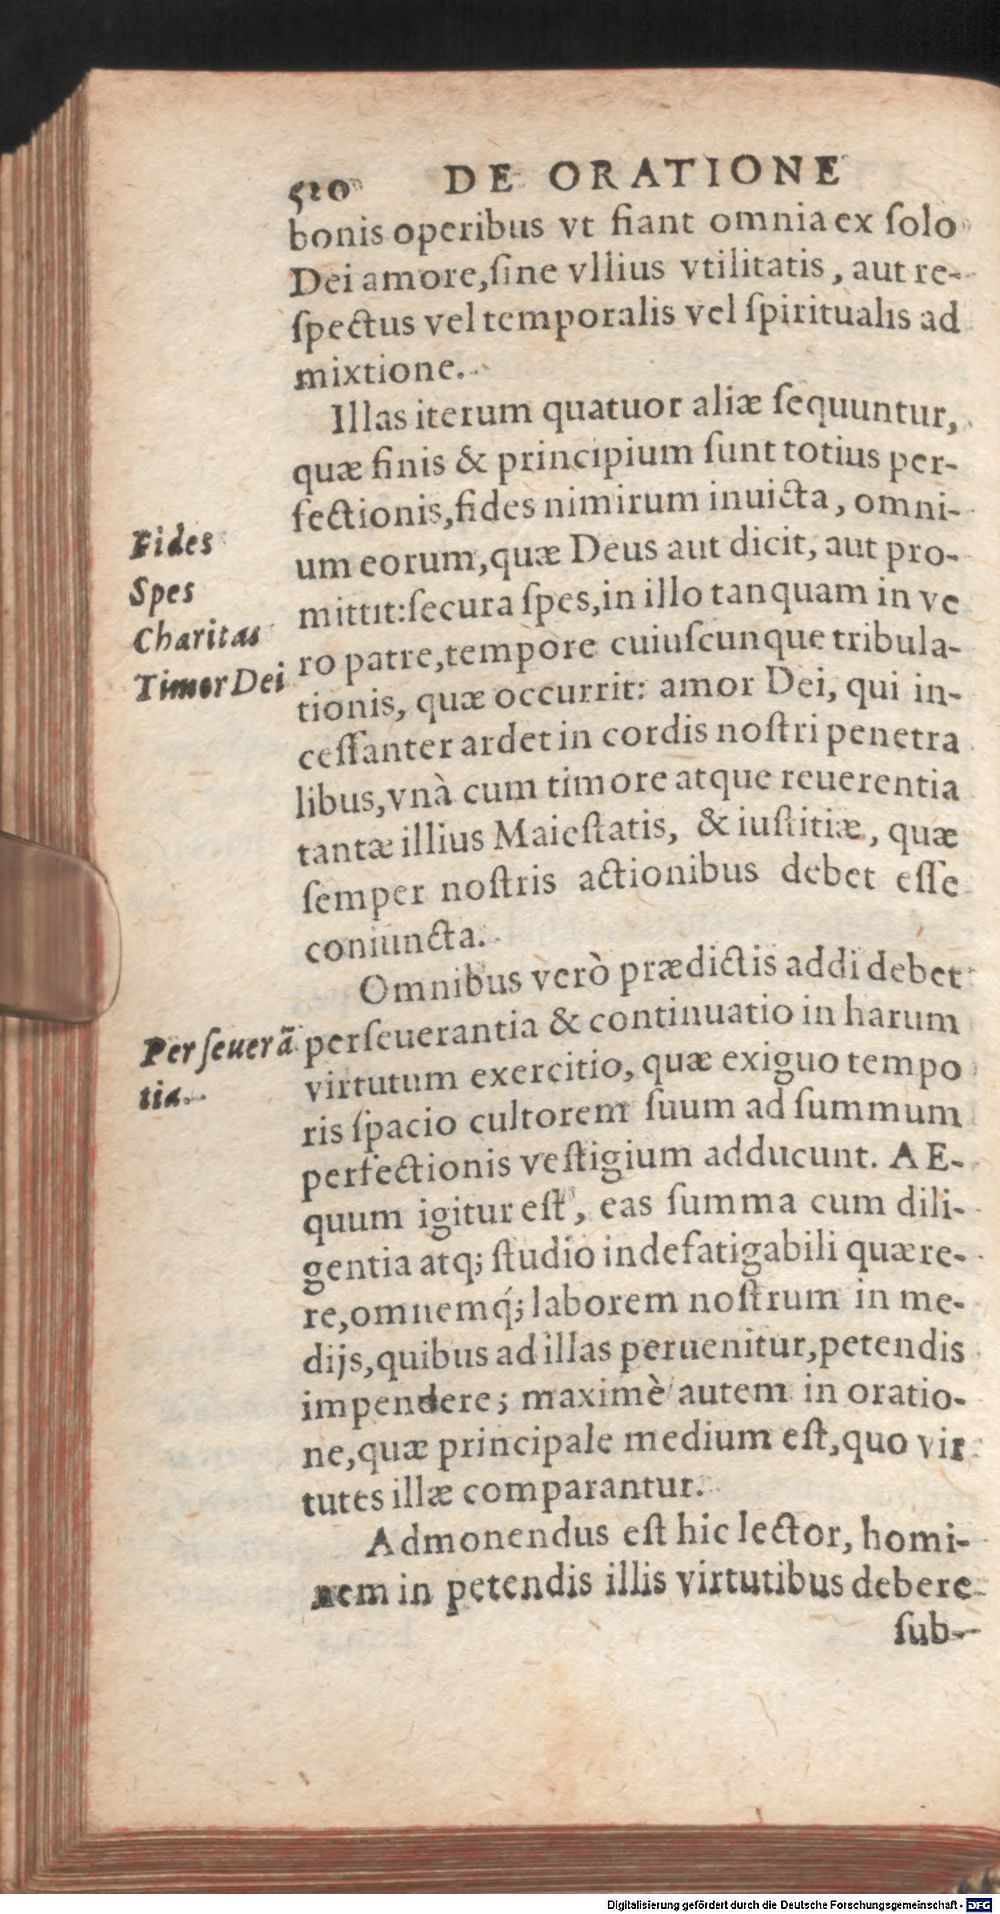 510 DE ORATIONE
bonis operibus vt fiant omnia ex ſolo
Dei amore,ſine vllius vtilitatis, aut re-
ſpectus vel temporalis vel ſpiritualis ad
mixtione.
Illas iterum quatuor aliæ ſequuntur,
quæ finis & principium ſunt totius per-
fectionis,fides nimirum inuicta, omni-
Fides
um eorum,quæ Deus aut dicit, aut pro-
Spes
mittit:ſecura ſpes,in illo tanquam in ve
Charitas
ro patre,tempore cuiuſcunque tribula-
Timor Dei
tionis, quæ occurrit: amor Dei, qui in-
ceſſanter ardet in cordis noſtri penetra
libus,vnà cum timore atque reuerentia
tantæ illius Maieſtatis, & iuſtitiæ, quæ
ſemper noſtris actionibus debet eſſe
coniuncta.
Omnibus verò prædictis addi debet
Perſeuerã
perſeuerantia & continuatio in harum
tia.
virtutum exercitio, quæ exiguo tempo
ris ſpacio cultorem ſuum ad ſummum
perfectionis veſtigium adducunt. AE-
quum igitur eſt, eas ſumma cum dili-
gentia atq; ſtudio indefatigabili quære-
re,omnemq́; laborem noſtrum in me-
dijs,quibus ad illas peruenitur,petendis
impendere; maximè autem in oratio-
ne,quæ principale medium eſt,quo vir
tutes illæ comparantur.
Admonendus eſt hic lector, homi-
nem in petendis illis virtutibus debere
ſub-
Digitalisierung gefördert durch die Deutsche Forschungsgemeinschaft - DFG